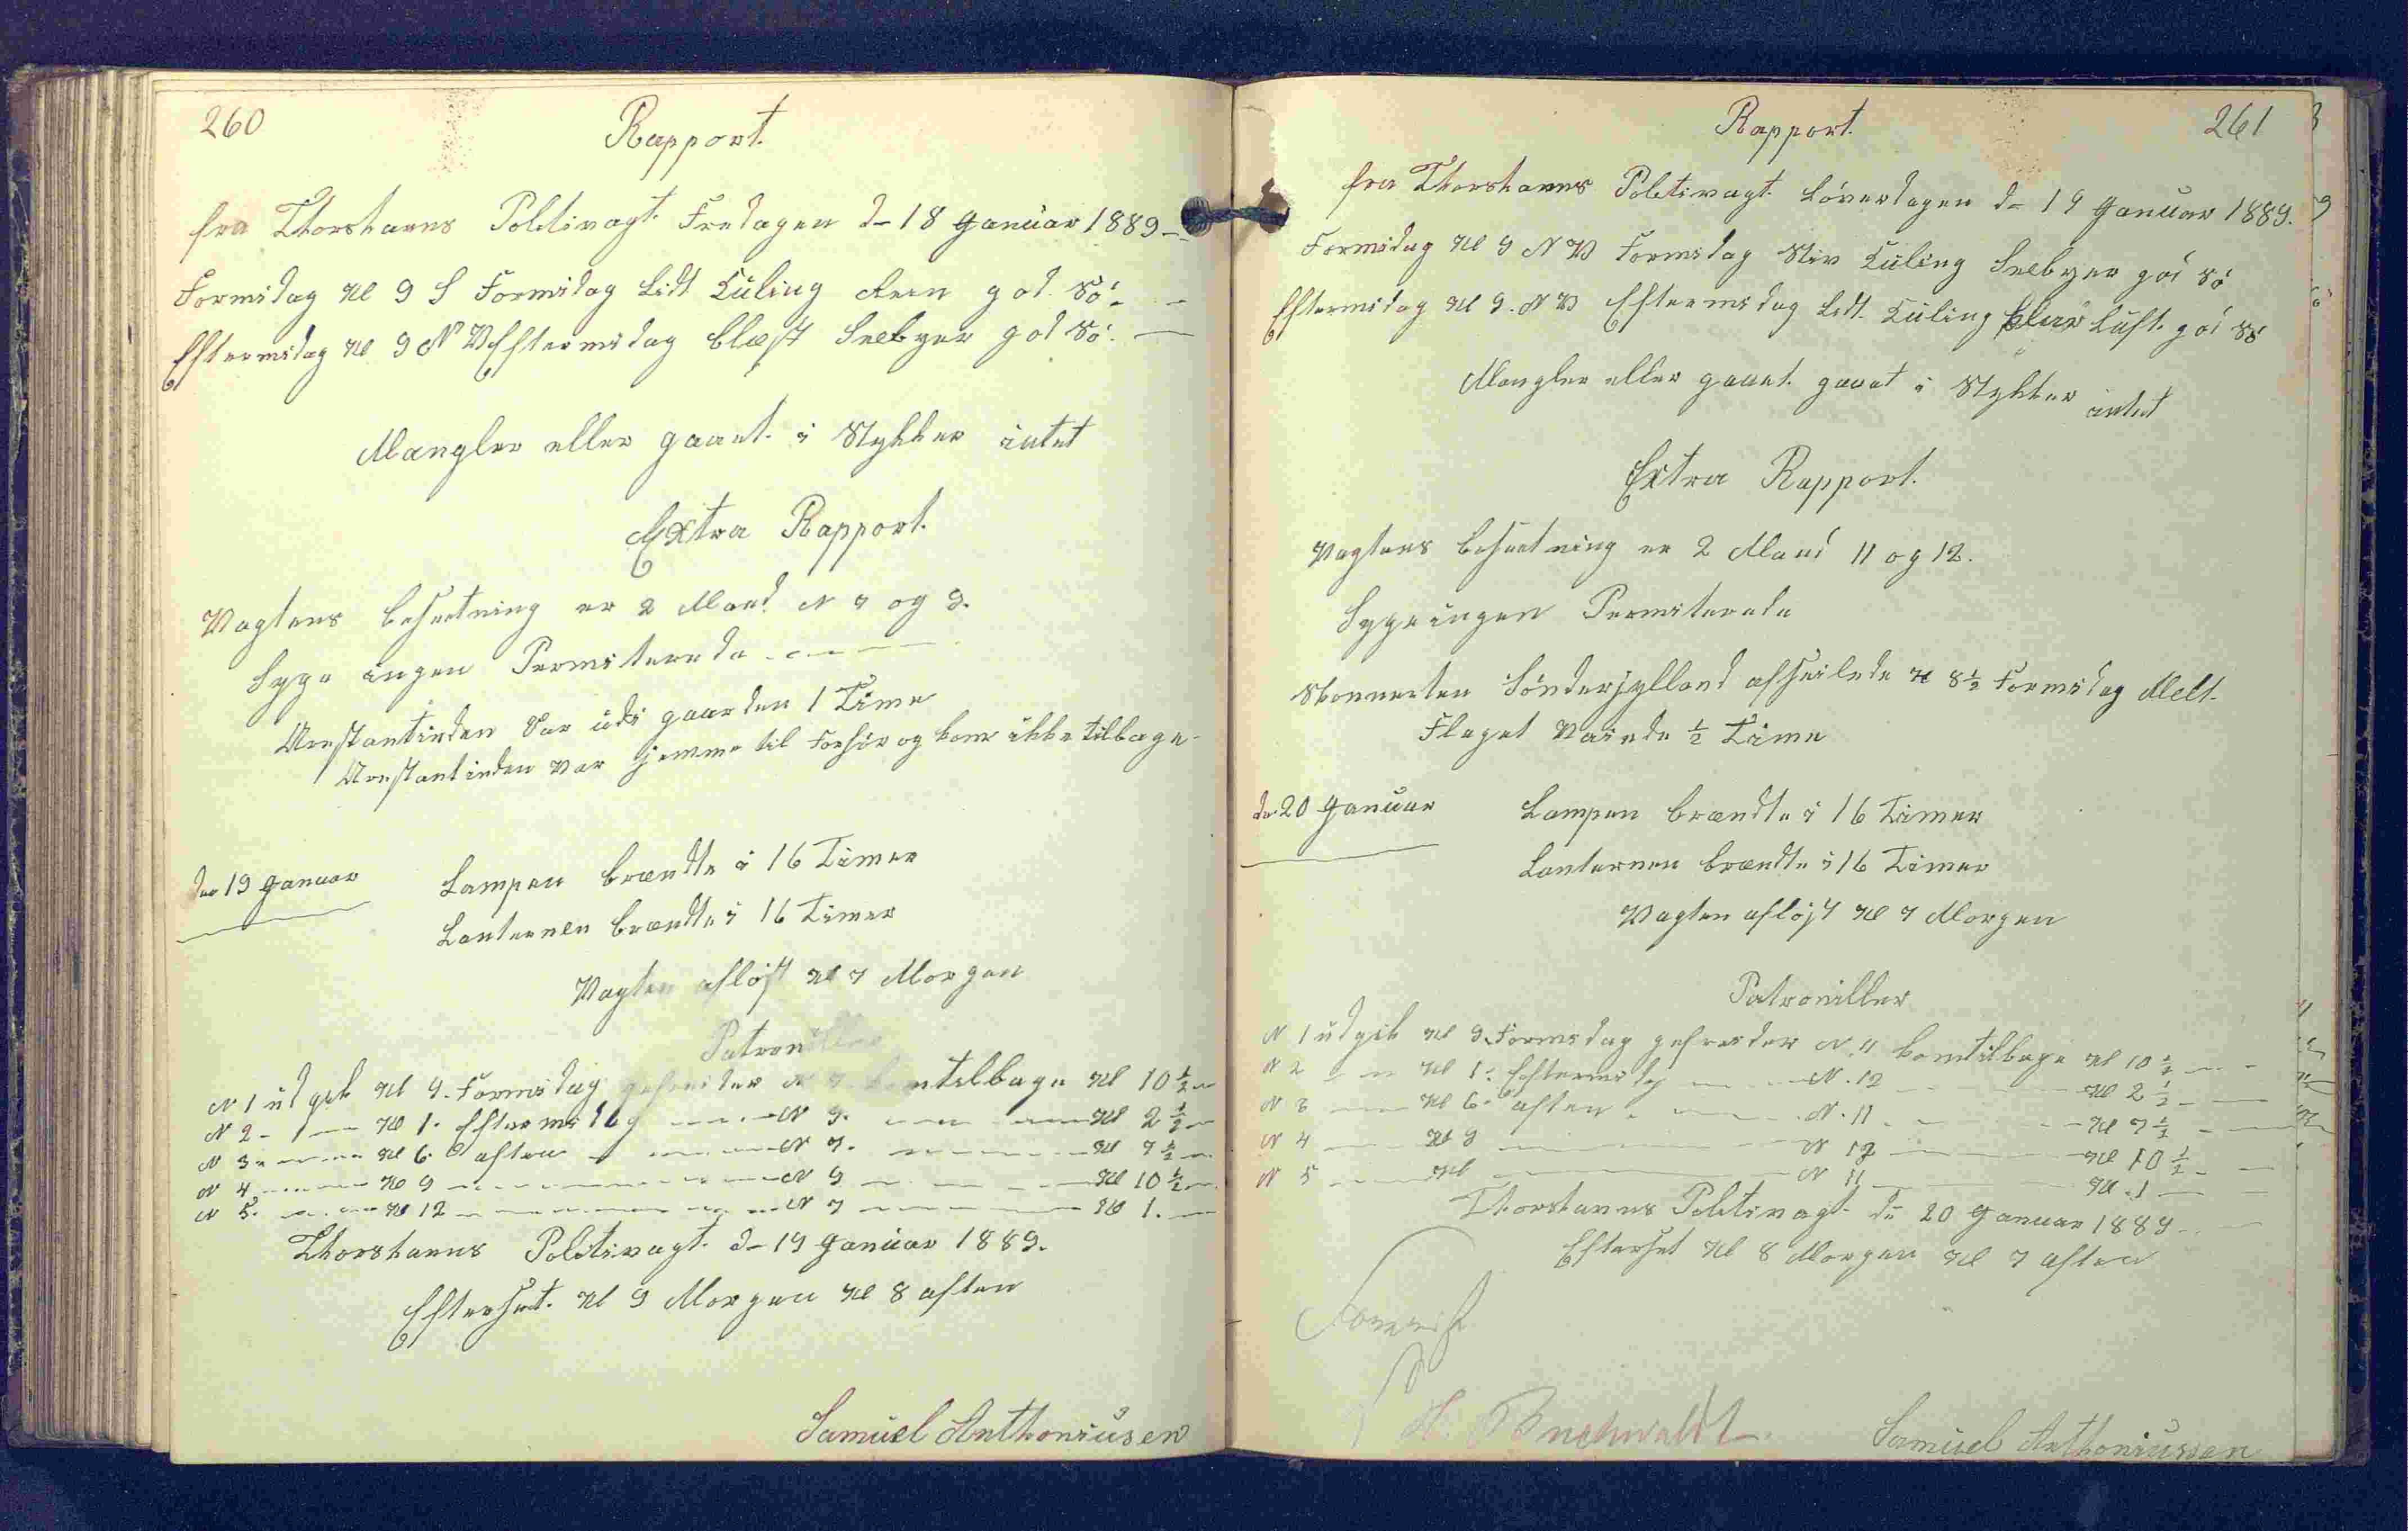 260
Rapport.
fra Thorshavns Politivagt. Fredagen d- 18 Januar 1889
Formidag Kl 9 S Formidag Lidt Kuling Rein god Sö
Eftermidag Kl 9 NV Eftermidag blæst Seebyer god Sö.
Mangler eller gaaet i Stykker intet
Extra Rapport.
Vagtens besætning er 2 Mand N 7 og 9.
Syge ingen Permiterede
Arestantinden Var udi gaarden 1 Time
Arestantinden var hjemme til Forhör og kom ikke tilbage
den 19 Januar
Lampen brændte i 16 Timer
Lanternen brændte i 16 Timer
Vagten aflöst Kl 7 Morgen
Patroniller
N 1 udgik Kl 9. Formidag gefreider N 7. kom tilbage Kl 10 ½
N 2 Kl 1. Eftermidag N 9. Kl 2 ½
N 3 Kl 6. aften N 7. Kl 7 ½
N 4 Kl 9 N 9 Kl 10 ½
N 5. Kl 12 N 7 Kl 1.
Thorshavns Politivagt. d- 19 Januar 1889.
Efterset. Kl 9 Morgen Kl 8 aften
Samuel Anthoniusen
261
Rapport.
fra Thorshavns Politivagt. Löverdagen d- 19 Januar 1889.
Formidag Kl 9 NV Formidag Stiv Kuling Seebyer god Sö
Eftermidag Kl 9. NV Eftermidag Lidt Kuling klar Luft. god Sö
Mangler eller gaaet. gaaet i Stykker intet
Extra Rapport.
Vagtens besætning er 2 Mand 11 og 12.
Syge ingen Permiterede
Skonnerten Sönderjylland afseilede Kl 8½ Formidag
Flaget Vaiede ½ Time
de 20 Januar
Lampen brændte i 16 Timer
Lanternen brændte i 16 Timer
Vagten aflöst Kl 7 Morgen
Patroniller
N 1 udgik Kl 9. Formidag gefreider N. 11 kom tilbage Kl 10 ½
N 2 Kl 1. Eftermidag N. 12 Kl 2 ½
N 3 Kl 6. aften N. 11 Kl 7 ½
N 4 Kl 9 N 12 Kl 10 ½
N 5 Kl N 11 Kl. 1
Thorshavns Politivagt. de 20 Januar 1889
Efterset Kl 8 Morgen Kl 7 aften
H. Buchwaldt.
Samuel Anthoniussen